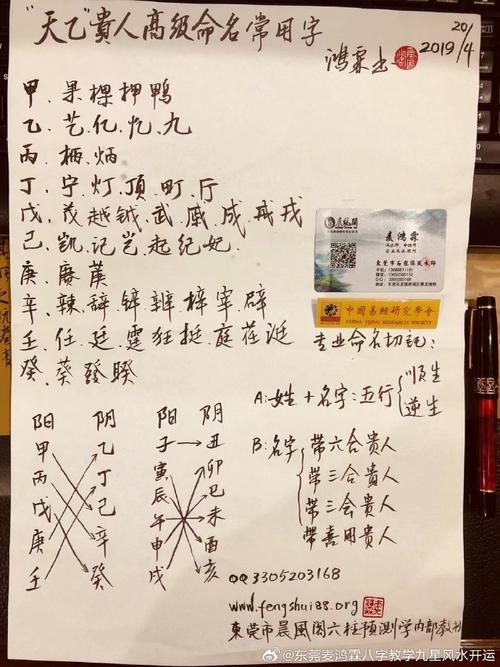 "天乙"貴人高级命名常用字
20/4
2019
鸿霖书
甲、果、棵、押、鸭
乙、艺、亿、忆、九
丙、柄、炳
丁、宁、灯、頂、町、厅
戊、茂、越、钺、武、戚、成、戒、戎
己、凯、记、岂、起、纪、妃
庚、赓
辛、辣、辞、锌、辨、梓、宰、辟
壬、任、廷、霆、狂、挺、庭、荏、诞
癸、葵、發、睽
麦鸿霖
中國易經研究學會
CHINA YIJING RESEARCH SOCIETY
专业命名切記：
A:姓+名字:五行
顺生
逆生
B:名字
带六合貴人
带三合貴人
带三会貴人
带喜用貴人
阳 阴 阳 阴
甲 乙 子 丑
丙 丁 寅 卯
戊 己 辰 巳
庚 辛 午 未
壬 癸 申 酉
戌 亥
QQ 3305203168
www.fengshui88.org
東莞市晨風阁六柱预测学内部教材
@东莞麦鸿霖八字教学九星风水开运